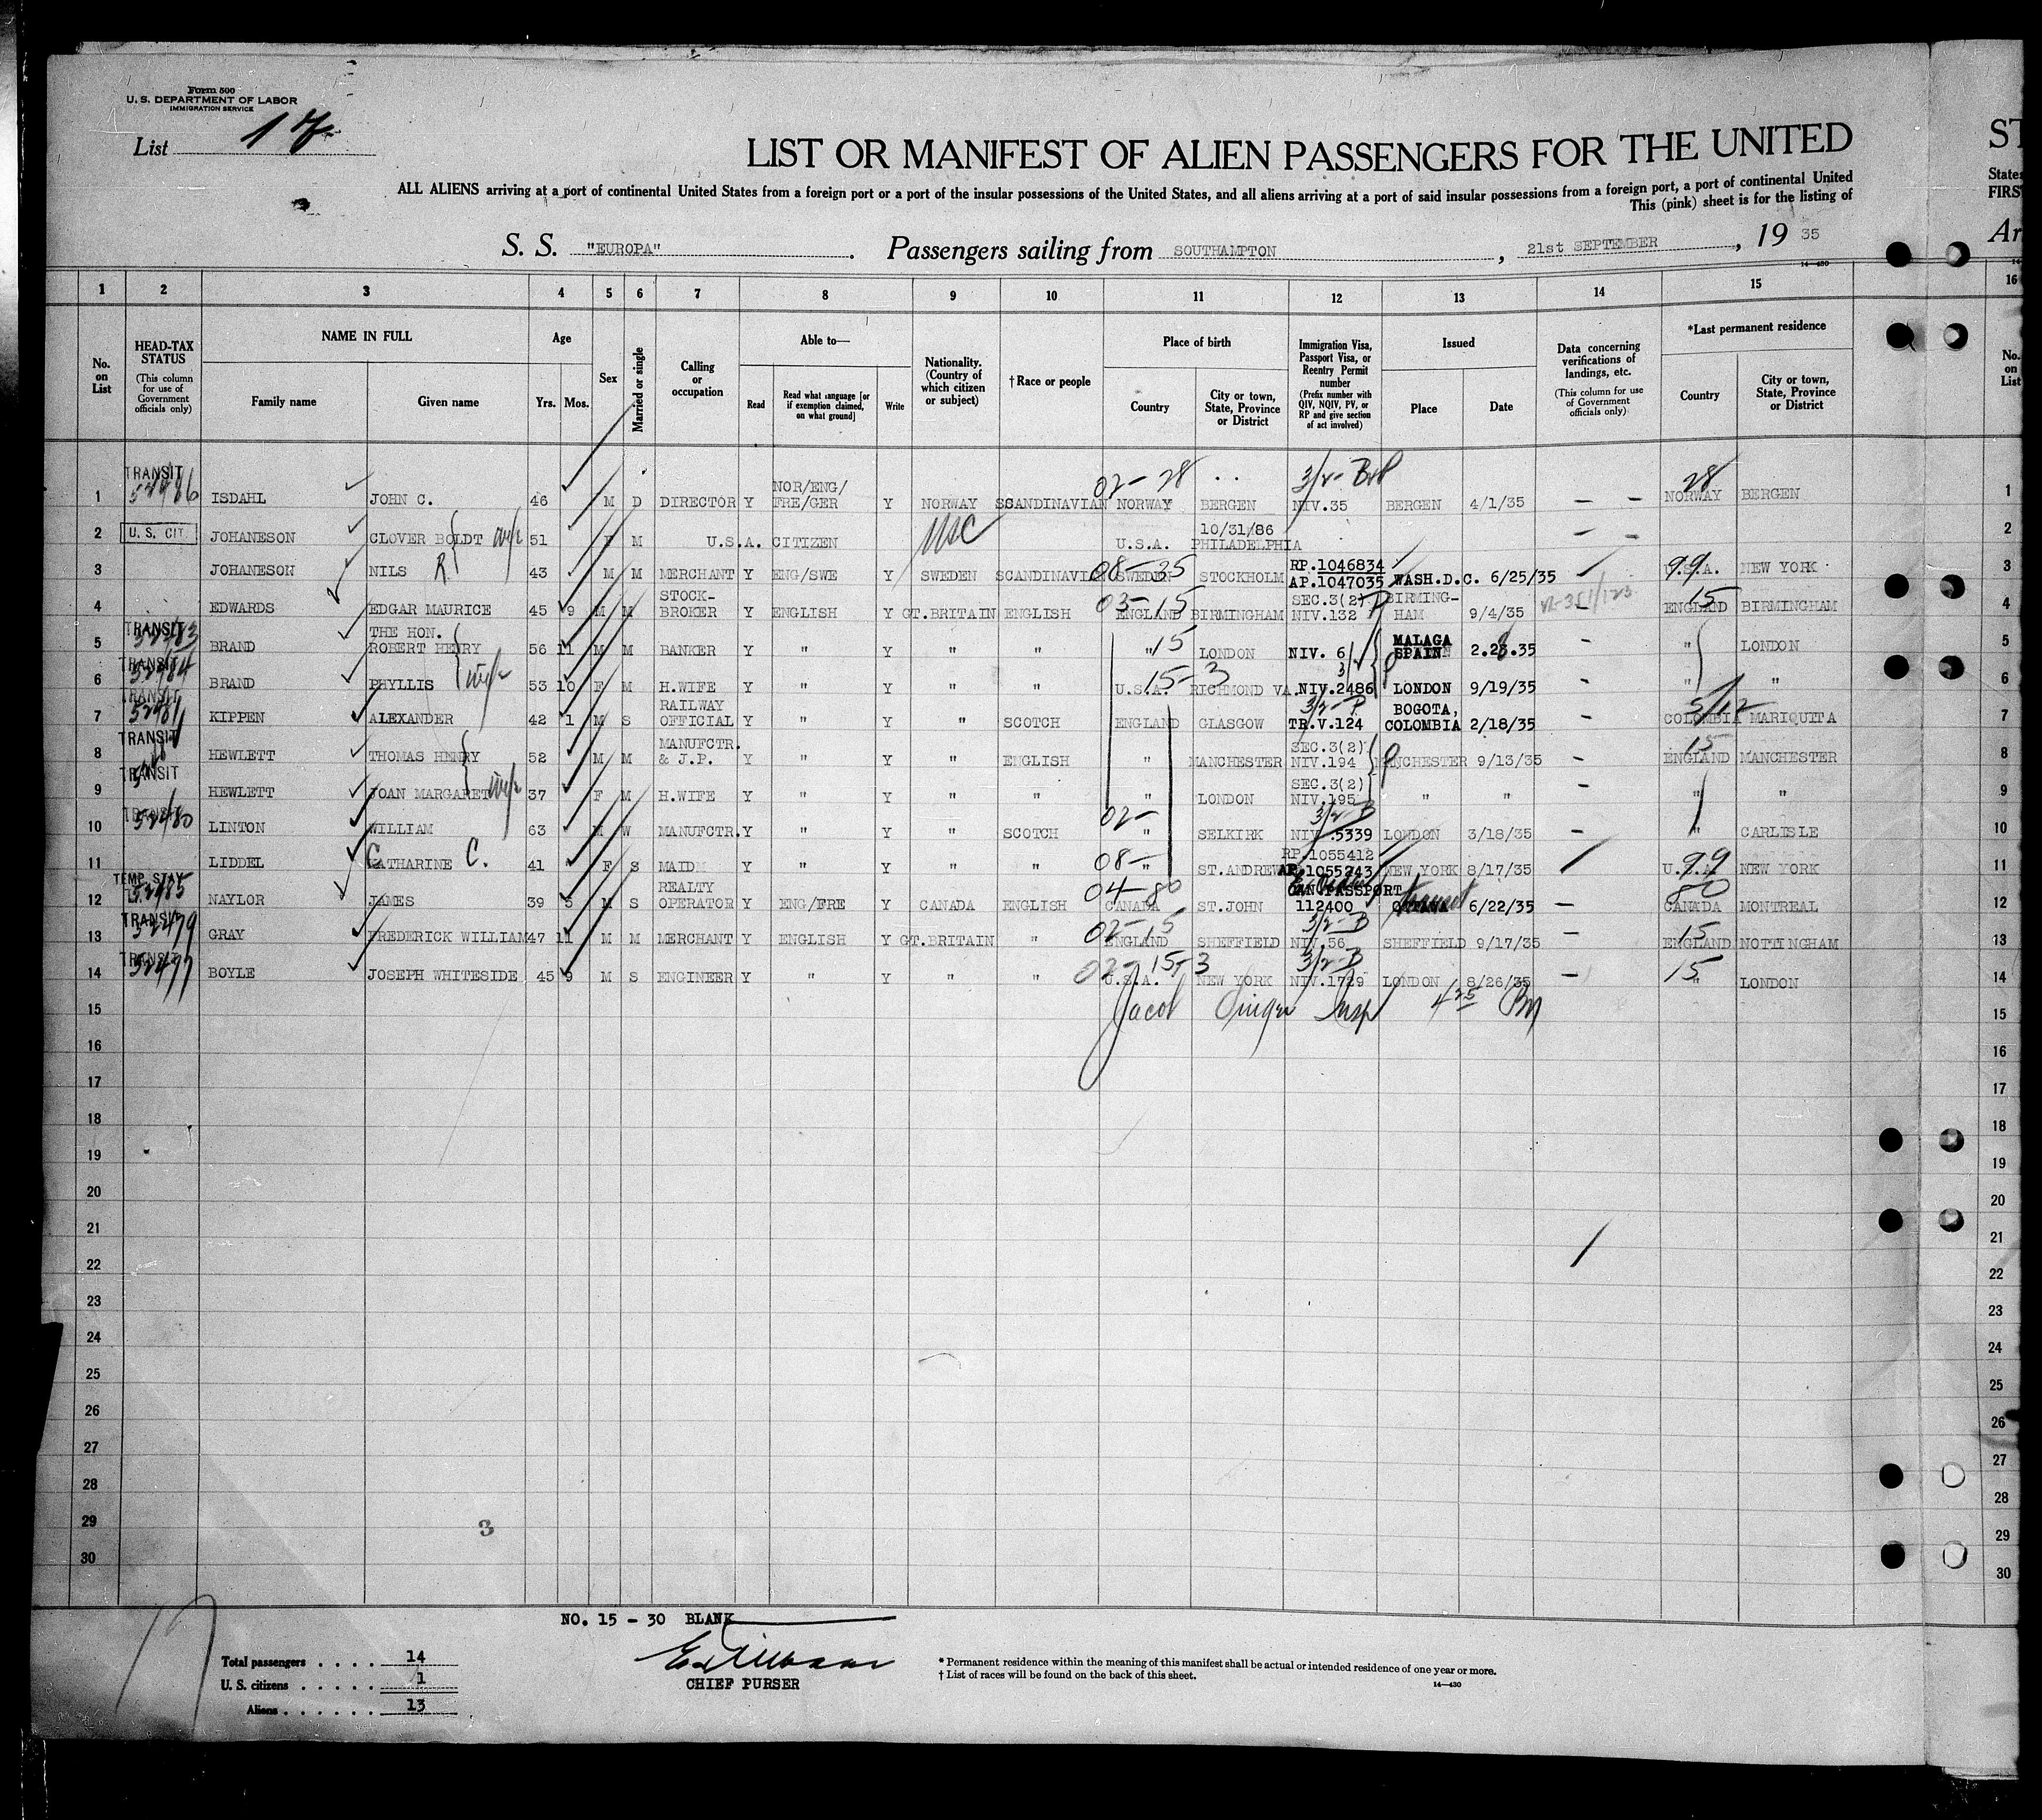 Form 500
U. S. DEPARTMENT OF LABOR
IMMIGRATION SERVICE
List 17
LIST OR MANIFEST OF ALIEN PASSENGERS FOR THE UNITED
ST
ALL ALIENS arriving at a port of continental United States from a foreign port or a port of the insular possessions of the United States, and all aliens arriving at a port of said insular possessions from a foreign port, a port of continental United
States
This (pink) sheet is for the listing of
FIRS
S. S. "EUROPA". Passengers sailing from SOUTHAMPTON, 21st SEPTEMBER, 19 35
Ar
14—430
1 2 3 4 5 6 7 8 9 10 11 12 13 14 15 16
No. on List
HEAD-TAX STATUS
(This column for use of Government officials only)
NAME IN FULL
Family name
Given name
Age
Yrs. Mos.
Sex
Married or single
Calling or occupation
Able to—
Read
Read what language [or if exemption claimed, on what ground]
Write
Nationality. (Country of which citizen or subject)
†Race or people
Place of birth
Country
City or town, State, Province or District
Immigration Visa, Passport Visa, or Reentry Permit number
(Prefix number with QIV, NQIV, PV, or RP and give section of act involved)
Issued
Place
Date
Data concerning verifications of landings, etc.
(This column for use of Government officials only)
*Last permanent residence
Country
City or town, State, Province or District
No. on List
1 TRANSIT 52486 ISDAHL JOHN C. 46 M D DIRECTOR Y NOR/ENG/ FRE/GER Y NORWAY SCANDINAVIAN 02-28 NORWAY BERGEN 3/2- NIV.35 BERGEN 4/1/35 — — 28 NORWAY BERGEN 1
2 U. S. CIT JOHANESON CLOVER BOLDT wife 51 F M U.S.A. CITIZEN USC U.S.A. 10/31/86 PHILADELPHIA — — 2
3 JOHANESON NILS R. 43 M M MERCHANT Y ENG/SWE Y SWEDEN SCANDINAVIAN 08-35 SWEDEN STOCKHOLM RP.1046834 AP.1047035 WASH.D.C. 6/25/35 99 U.S.A. NEW YORK 3
4 EDWARDS EDGAR MAURICE 45 9 M M STOCK- BROKER Y ENGLISH Y GT.BRITAIN ENGLISH 03-15 ENGLAND BIRMINGHAM SEC.3(2) NIV.132 P BIRMING- HAM 9/4/35 15 ENGLAND BIRMINGHAM 4
5 TRANSIT 52483 BRAND THE HON. ROBERT HENRY 56 11 M M BANKER Y " Y " " " 15 LONDON NIV. 6 MALAGA SPAIN 2.23.35 — " LONDON 5
6 TRANSIT 52484 BRAND PHYLLIS wife 53 10 F M H.WIFE Y " Y " " 15-3 U.S.A. RICHMOND VA. NIV.2486 P LONDON 9/19/35 — " " 6
7 TRANSIT 52481 KIPPEN ALEXANDER 42 1 M S RAILWAY OFFICIAL Y " Y " SCOTCH ENGLAND GLASGOW 3/2-P TR.V.124 BOGOTA, COLOMBIA 2/18/35 5/12 COLOMBIA MARIQUITA 7
8 TRANSIT HEWLETT THOMAS HENRY 52 M M MANUFCTR. & J.P. Y " Y " ENGLISH " MANCHESTER SEC.3(2) NIV.194 P MANCHESTER 9/13/35 — 15 ENGLAND MANCHESTER 8
9 TRANSIT HEWLETT JOAN MARGARET wife 37 F M H.WIFE Y " Y " " " LONDON SEC.3(2) NIV.195 " " — " " 9
10 TRANSIT 52480 LINTON WILLIAM 63 M W MANUFCTR. Y " Y " SCOTCH 02- " SELKIRK 3/2-B NIV.5339 LONDON 3/18/35 — " CARLISLE 10
11 LIDDEL CATHARINE C. 41 F S MAID Y " Y " " 08- " ST.ANDREW RP.1055412 AP.1055243 NEW YORK 8/17/35 99 U.S.A. NEW YORK 11
12 TEMP. STAY 52485 NAYLOR JAMES 39 5 M S REALTY OPERATOR Y ENG/FRE Y CANADA ENGLISH 04-80 CANADA ST.JOHN CAN.PASSPORT 112400 OTTAWA 6/22/35 — 80 CANADA MONTREAL 12
13 TRANSIT 52479 GRAY FREDERICK WILLIAM 47 11 M M MERCHANT Y ENGLISH Y GT.BRITAIN " 02-15 ENGLAND SHEFFIELD 3/2-B NIV.56 SHEFFIELD 9/17/35 — 15 ENGLAND NOTTINGHAM 13
14 TRANSIT 52477 BOYLE JOSEPH WHITESIDE 45 9 M S ENGINEER Y " Y " " 02-15-3 U.S.A. NEW YORK 3/2-B NIV.1729 LONDON 8/26/35 — 15 " LONDON 14
15 Jacob Singer Insp 15
16 16
17 17
18 18
19 19
20 20
21 21
22 22
23 23
24 24
25 25
26 26
27 27
28 28
29 3 29
30 30
17
NO. 15 - 30 BLANK
CHIEF PURSER
Total passengers . . . . 14
U. S. citizens . . . . . 1
Aliens . . . . . . 13
* Permanent residence within the meaning of this manifest shall be actual or intended residence of one year or more.
† List of races will be found on the back of this sheet.
14—430